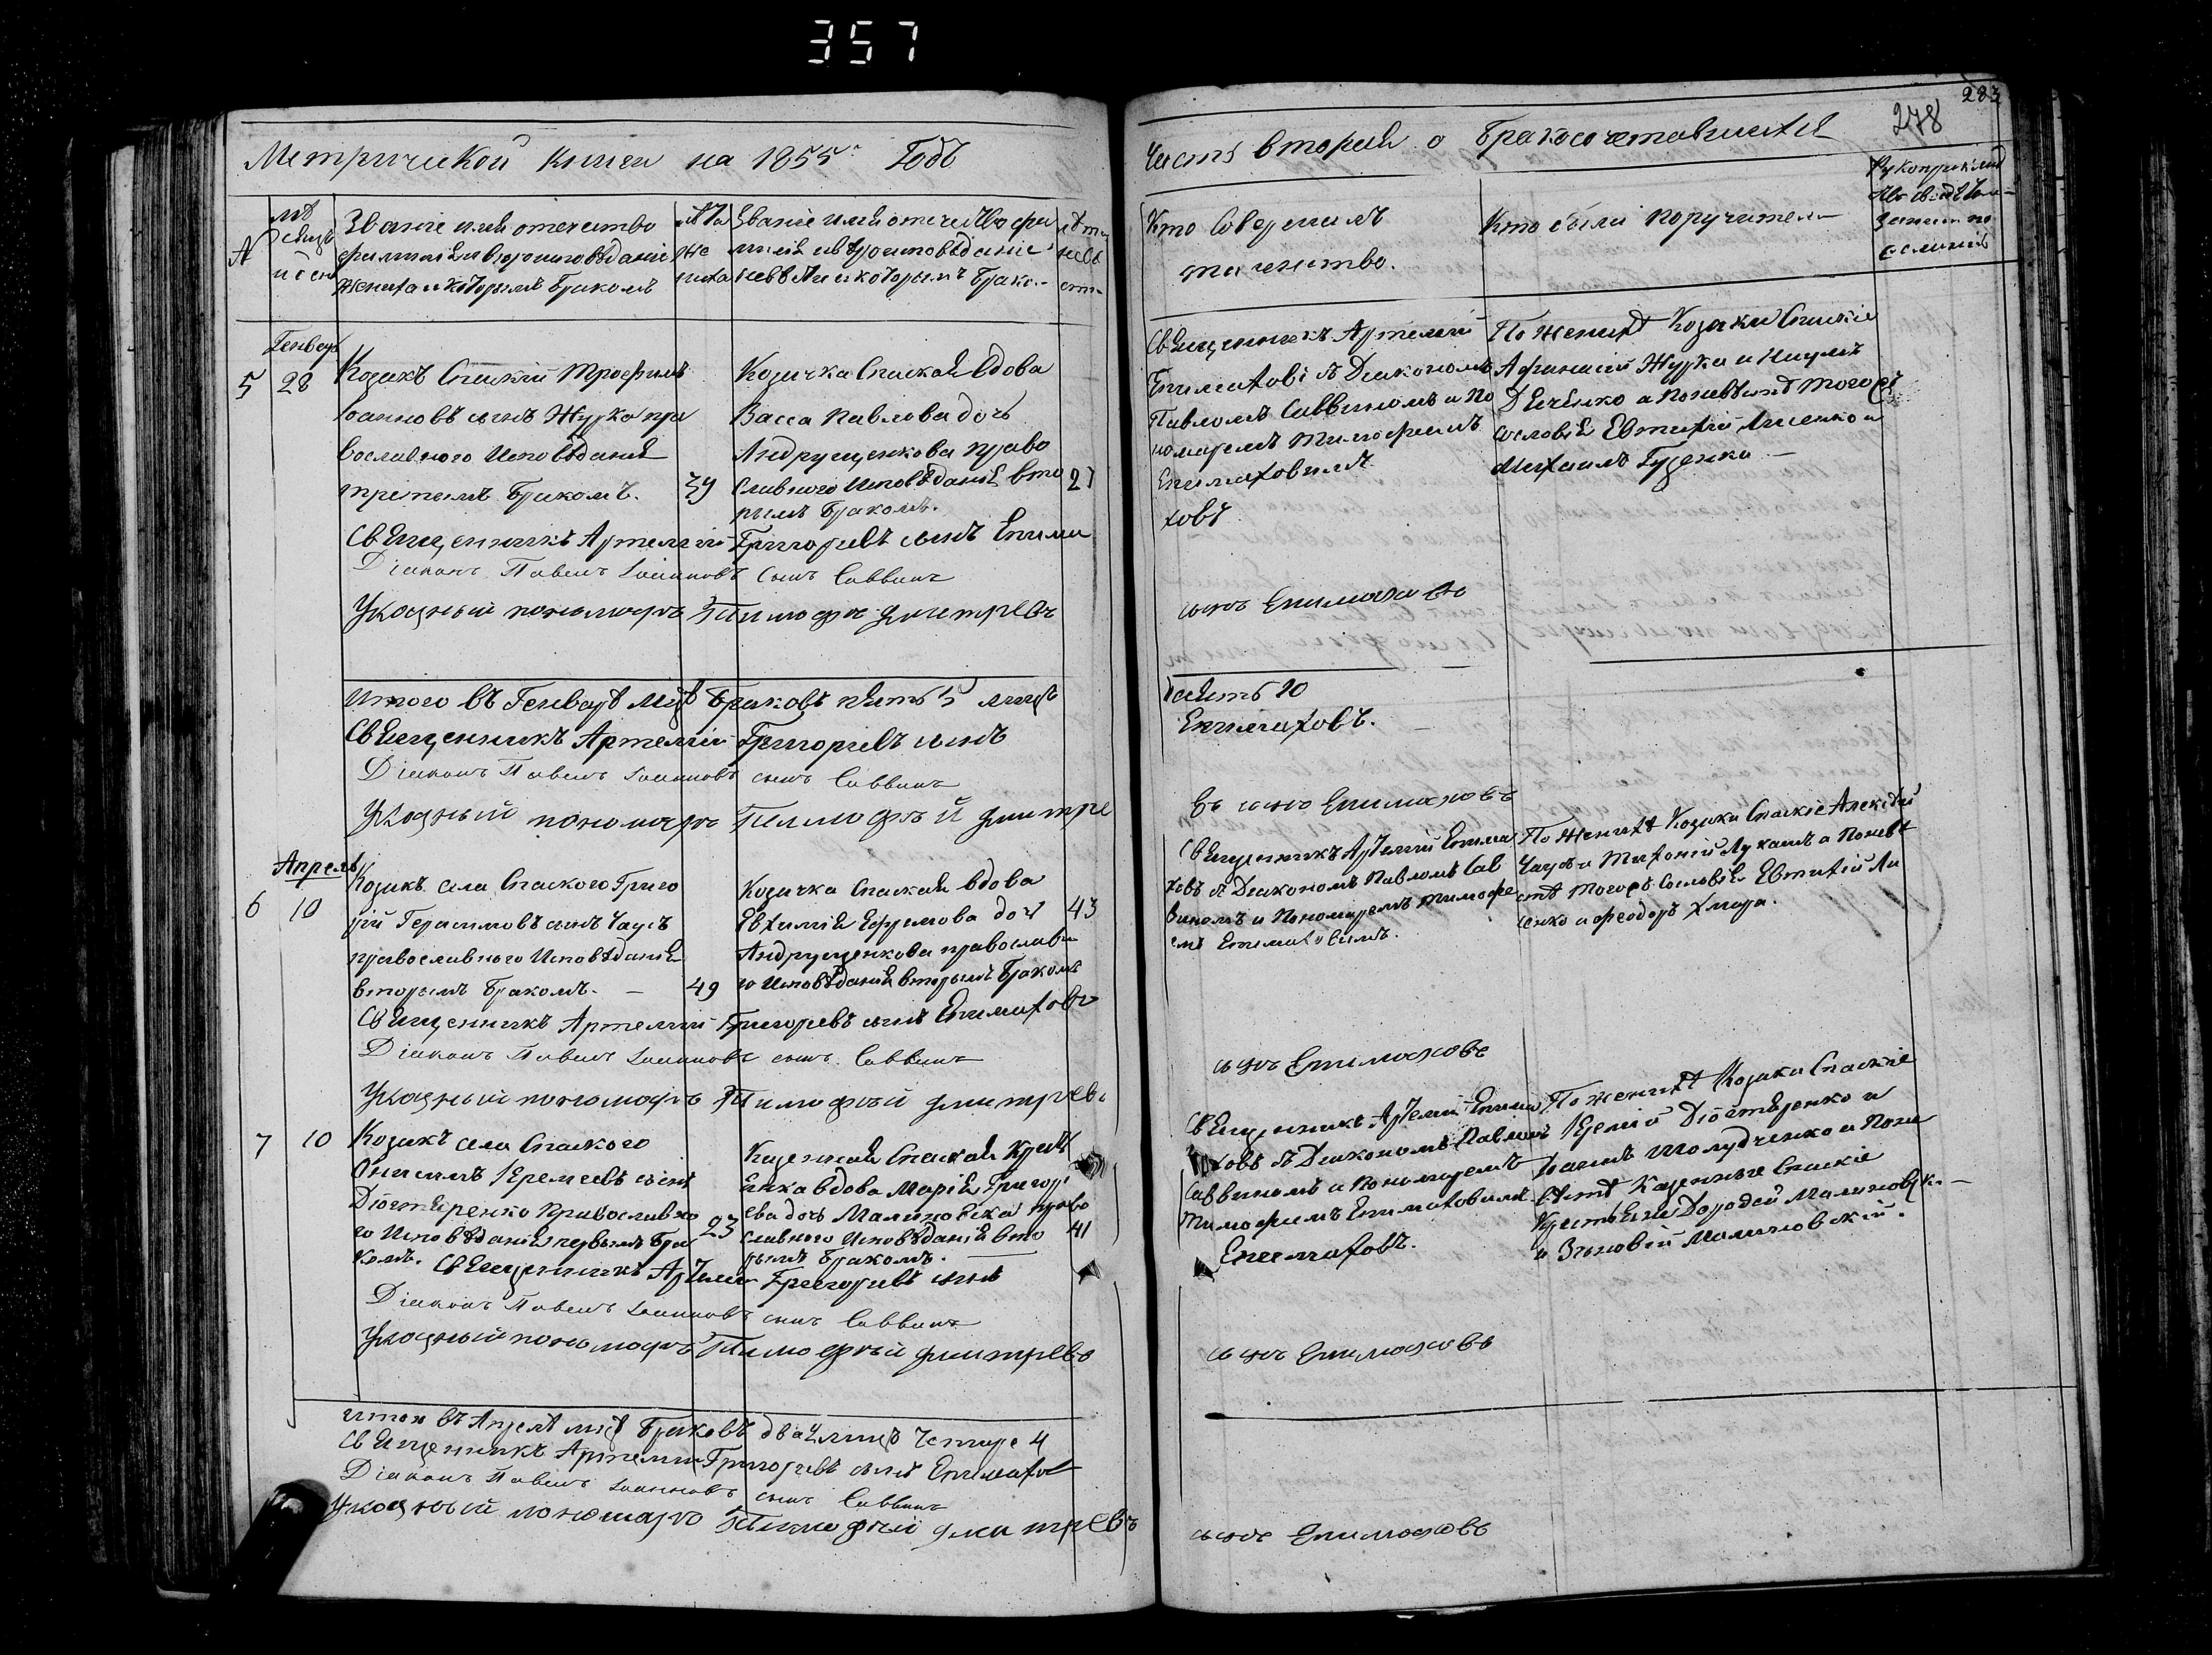 357
283
278
Метрической книги на 1855й Годъ
Часть вторая о бракосочетавшихся
№
мѣсяцъ и день
Званіе имя отечество
фамилія и вѣроисповѣданіе
жениха и которымъ бракомъ
лѣта
же
ниха
Званіе имя отечество фа
милія и вѣроисповѣданіе
невѣсты и которымъ брако-
лѣта
невѣ
сты
Кто совершилъ
таинство.
Кто были поручители
Генварь
5 28
Козакъ Спаскій Трофимъ
Іоанновъ сынъ Журко пра
вославного Исповѣданія
третимъ бракомъ. 39
Козачка Спаская вдова
Васса Павлова дочь
Андрущенкова право
славного Исповѣданія вто 27
рымъ бракомъ.
Священникъ Артемій
Епимаховъ съ Діакономъ
Павломъ Саввинымъ и По
номаремъ Тимофеемъ
Епимаховымъ
По женихѣ Козаки Спаскіе
Афанасій Журка и Наумъ
Дяченко а по невѣстѣ того жъ
сословія Евтихій Лисенко и
Михаилъ Гуценко —
Священникъ Артемій Григорьевъ сынъ Епима
ховъ
Діаконъ Павелъ Іоанновъ сынъ Саввинъ
Указный пономарь Тимофей Дмитревъ
сынъ Епимаховъ
Итого въ Генварѣ мцѣ браковъ пять 5 лицъ
десять 10
Священникъ Артемій Григорьевъ сынъ
Епимаховъ. —
Діаконъ Павелъ Іоанновъ сынъ Саввинъ
Указный пономарь Тимофей Дмитре
въ сынъ Епимаховъ
Апрель
6 10
Козакъ села Спаского Григо
рій Герасимовъ сынъ Чаусъ
православного Исповѣданія
вторымъ бракомъ. — 49
Козачка Спаская вдова
Евхимія Ефремова дочь 43
Андрущенкова православна
го Исповѣданія вторымъ бракомъ
Священникъ Артемій Епима
ховъ съ Діакономъ Павломъ Сав
винымъ и Пономаремъ Тимофе
емъ Епимаховымъ.
По женихѣ Козаки Спаскіе Алексѣй
Чаусъ и Тихоній Лукашъ а по невѣ
стѣ того жъ Сословія Евтихій Ли
сенко и Феодоръ Хмара.
Священникъ Артемій Григорьевъ сынъ Епимаховъ
Діаконъ Павелъ Іоанновъ сынъ Саввинъ
Указный пономарь Тимофей Дмитревъ
сынъ Епимаховъ
7 10
Козакъ села Спаского
Онисимъ Іеремеевъ сынъ
Дюгтяренко Православно
го Исповѣданія первымъ бра 23
комъ.
Казенная Спаская Крестя
янка вдова Марія Григорі
ева дочь Малиновска право
славного Исповѣданія вто 41
рымъ бракомъ. —
Священникъ Артемій Епима
ховъ съ Діакономъ Павломъ
Саввинымъ и Пономаремъ
Тимофеемъ Епимаховымъ.
По женихѣ Козаки Спаскіе
Іеремій Дюгтяренко и
Іоаннъ Шолудченко а по не
вѣстѣ Казенные Спаскіе
Крестьяне Дорофей Малиновск. —
и Зѣновій Малиновскій.
Священникъ Артемій Григорьевъ сынъ
Епимаховъ.
Діаконъ Павелъ Іоанновъ сынъ Саввинъ
Указный пономарь Тимофей Дмитревъ
сынъ Епимаховъ
Итого въ Апрелѣ мцѣ браковъ два 2 лицъ четыре 4
Священникъ Артемій Григорьевъ сынъ Епимахов
Діаконъ Павелъ Іоанновъ сынъ Саввинъ
Указный пономарь Тимофей Дмитревъ
сынъ Епимаховъ